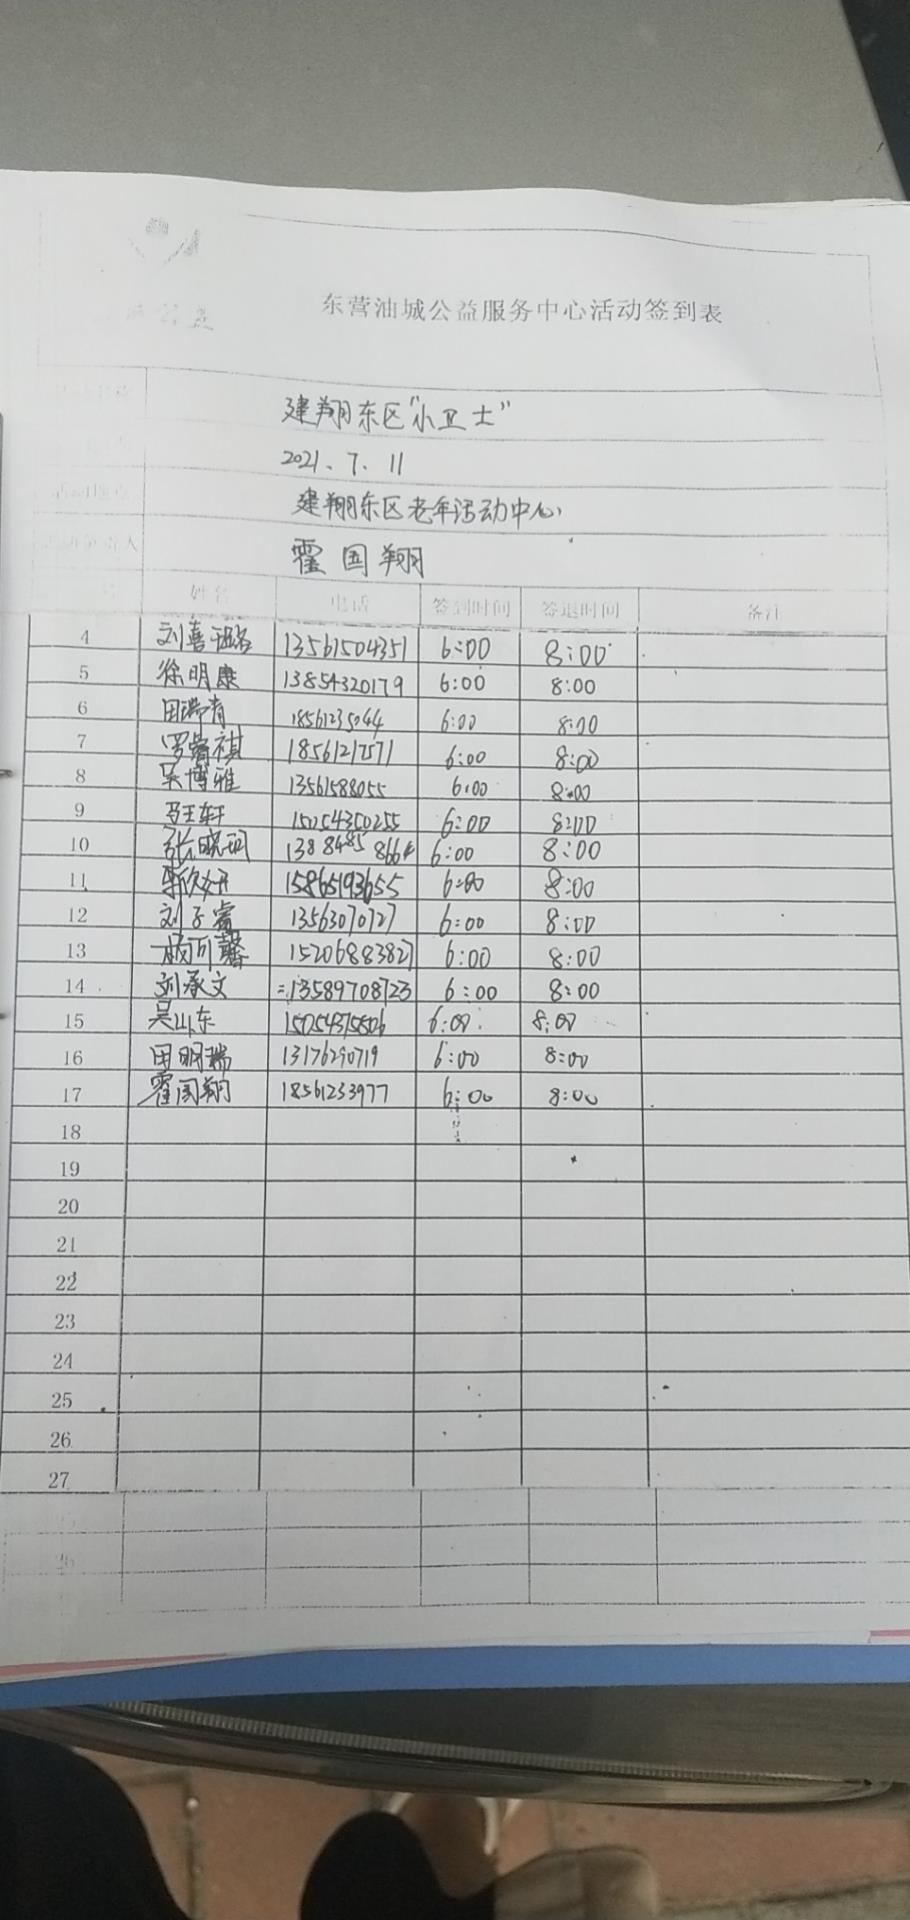 东营油城公益服务中心活动签到表
建翔东区“小卫士”
2021.7.11
活动地点 建翔东区老年活动中心
霍国翔
号 姓名 电话 签到时间 签退时间 备注
4 刘喜 13561504351 6:00 8:00
5 徐明康 13854320179 6:00 8:00
6 田瑞青 18561235044 6:00 8:00
7 罗睿祺 18561217571 6:00 8:00
8 吴博雅 13561588055 6:00 8:00
9 轩 15254350255 6:00 8:00
10 张晓珂 1388485866 6:00 8:00
11 李欣妍 15865193655 6:00 8:00
12 刘子睿 13563070727 6:00 8:00
13 杨可馨 15206883827 6:00 8:00
14 刘承文 13589708723 6:00 8:00
15 吴山东 15054375806 6:00 8:00
16 田明瑞 13176290719 6:00 8:00
17 霍国翔 18561233977 6:00 8:00
18
19
20
21
22
23
24
25
26
27